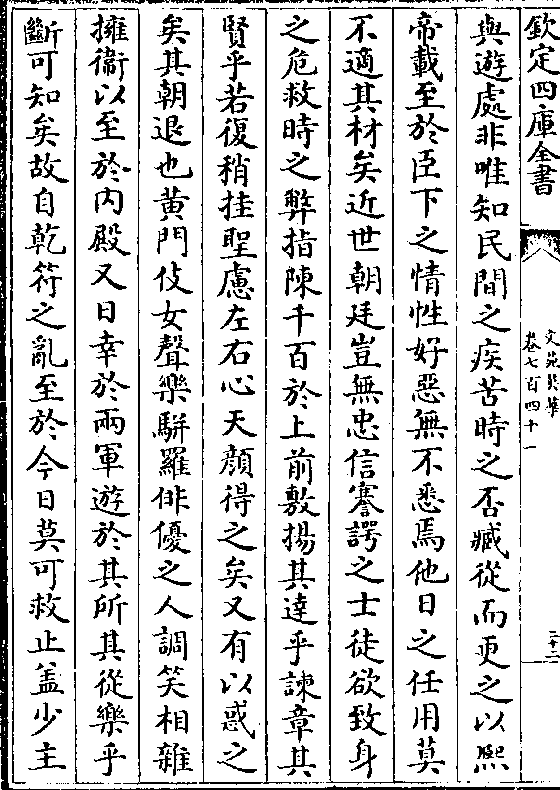 欽定四庫全書
文苑英華
卷七百四十一
二十二
與遊處非唯知民間之疾苦時之否臧從而更之以熈
帝載至於臣下之情性好惡無不悉焉他日之任用莫
不適其材矣近世朝廷豈無忠信謇諤之士徒欲致身
之危救時之弊指陳千百於上前敷揚其達乎諫章其
賢乎若復稍挂聖慮左右心天顔得之矣又有以惑之
矣其朝退也黄門伎女聲樂駢羅俳優之人調笑相雜
擁衞以至於内殿又日幸於兩軍遊於其所其從樂乎
斷可知矣故自乾符之亂至於今日莫可救止盖少主